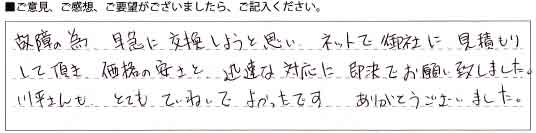 ■ご意見、ご感想、ご要望がございましたら、ご記入ください。
故障の為 早急に交換しようと思い ネットで御社に見積もり
して頂き 価格の安さと 迅速な対応に即決でお願い致しました。
川平さんも とても ていねいで よかったです ありがとうございました。